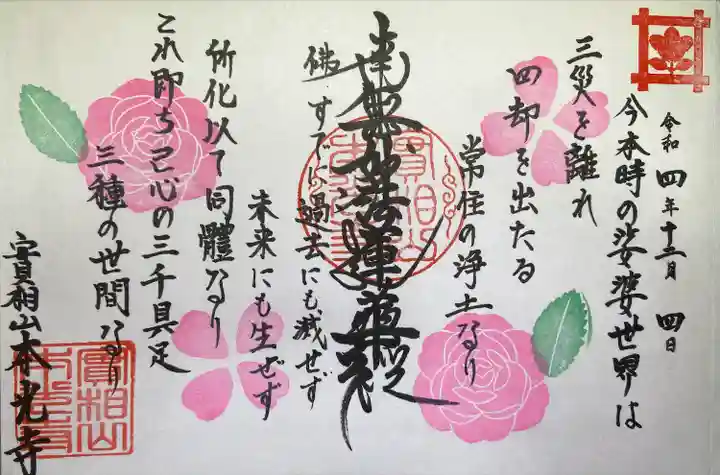 令和四年十二月四日
今本時の娑婆世界は
三災を離れ
四却を出たる
常住の浄土なり
南無妙法蓮華経
佛すでに過去にも滅せず
未来にも生ぜず
所化以て同體なり
これ即ち己心の三千具足
三種の世間なり
實相山本光寺